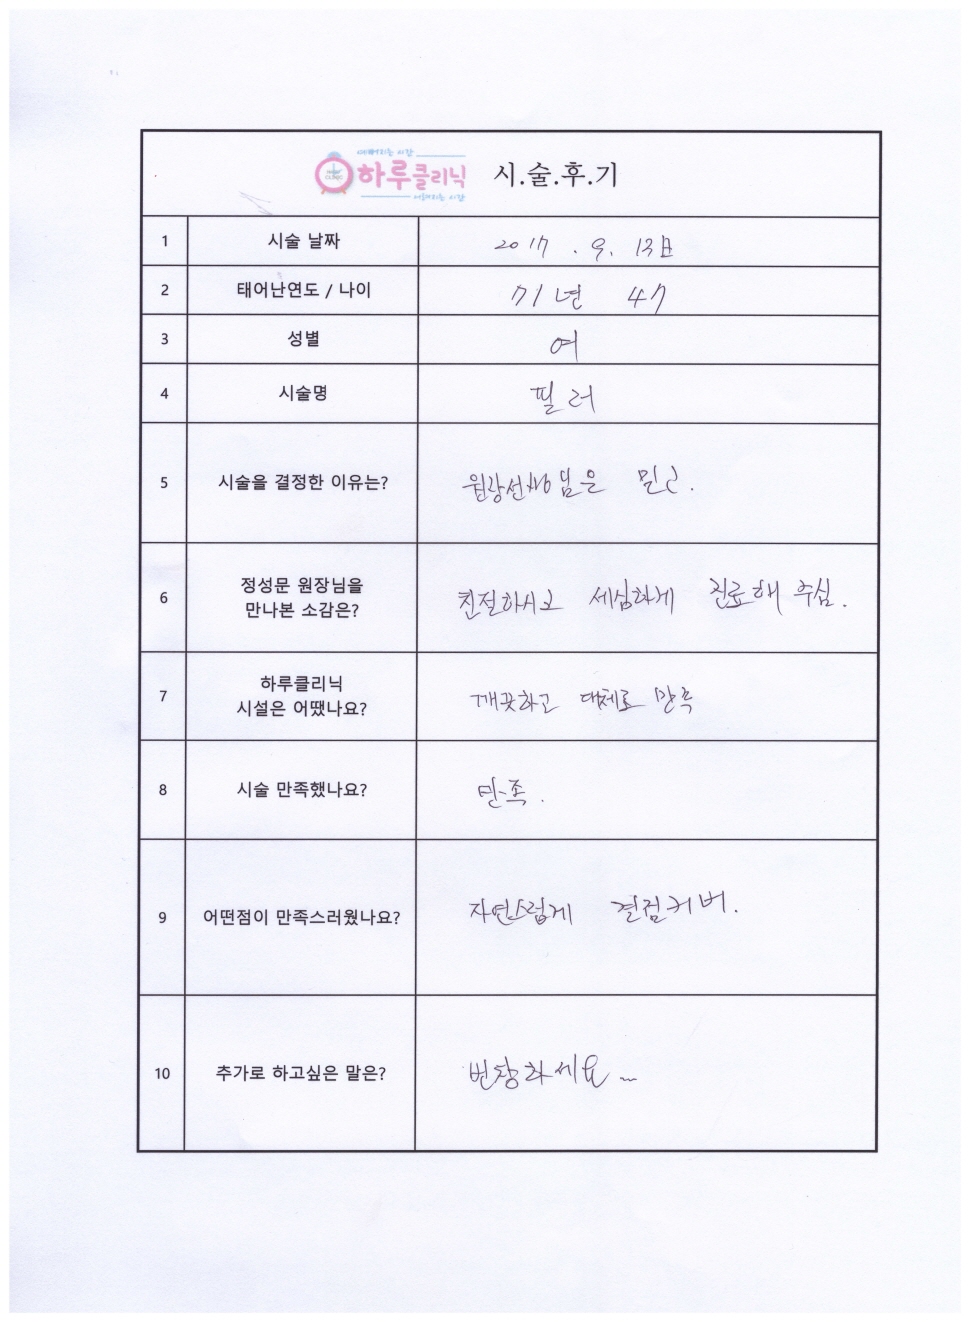 어려지는 시간
하루클리닉 시.술.후.기
CLINIC
1 시술 날짜 2017 . 9. 13日
2 태어난연도 / 나이 71년 47
3 성별 여
4 시술명 필러
5 시술을 결정한 이유는? 님은 믿고.
6 정성문 원장님을
만나본 소감은? 친절하시고 세심하게 진료해 주심.
7 하루클리닉
시설은 어땠나요? 깨끗하고 대체로 만족
8 시술 만족했나요? 만족.
9 어떤점이 만족스러웠나요? 자연스럽게 결점커버.
10 추가로 하고싶은 말은? 번창하세요~